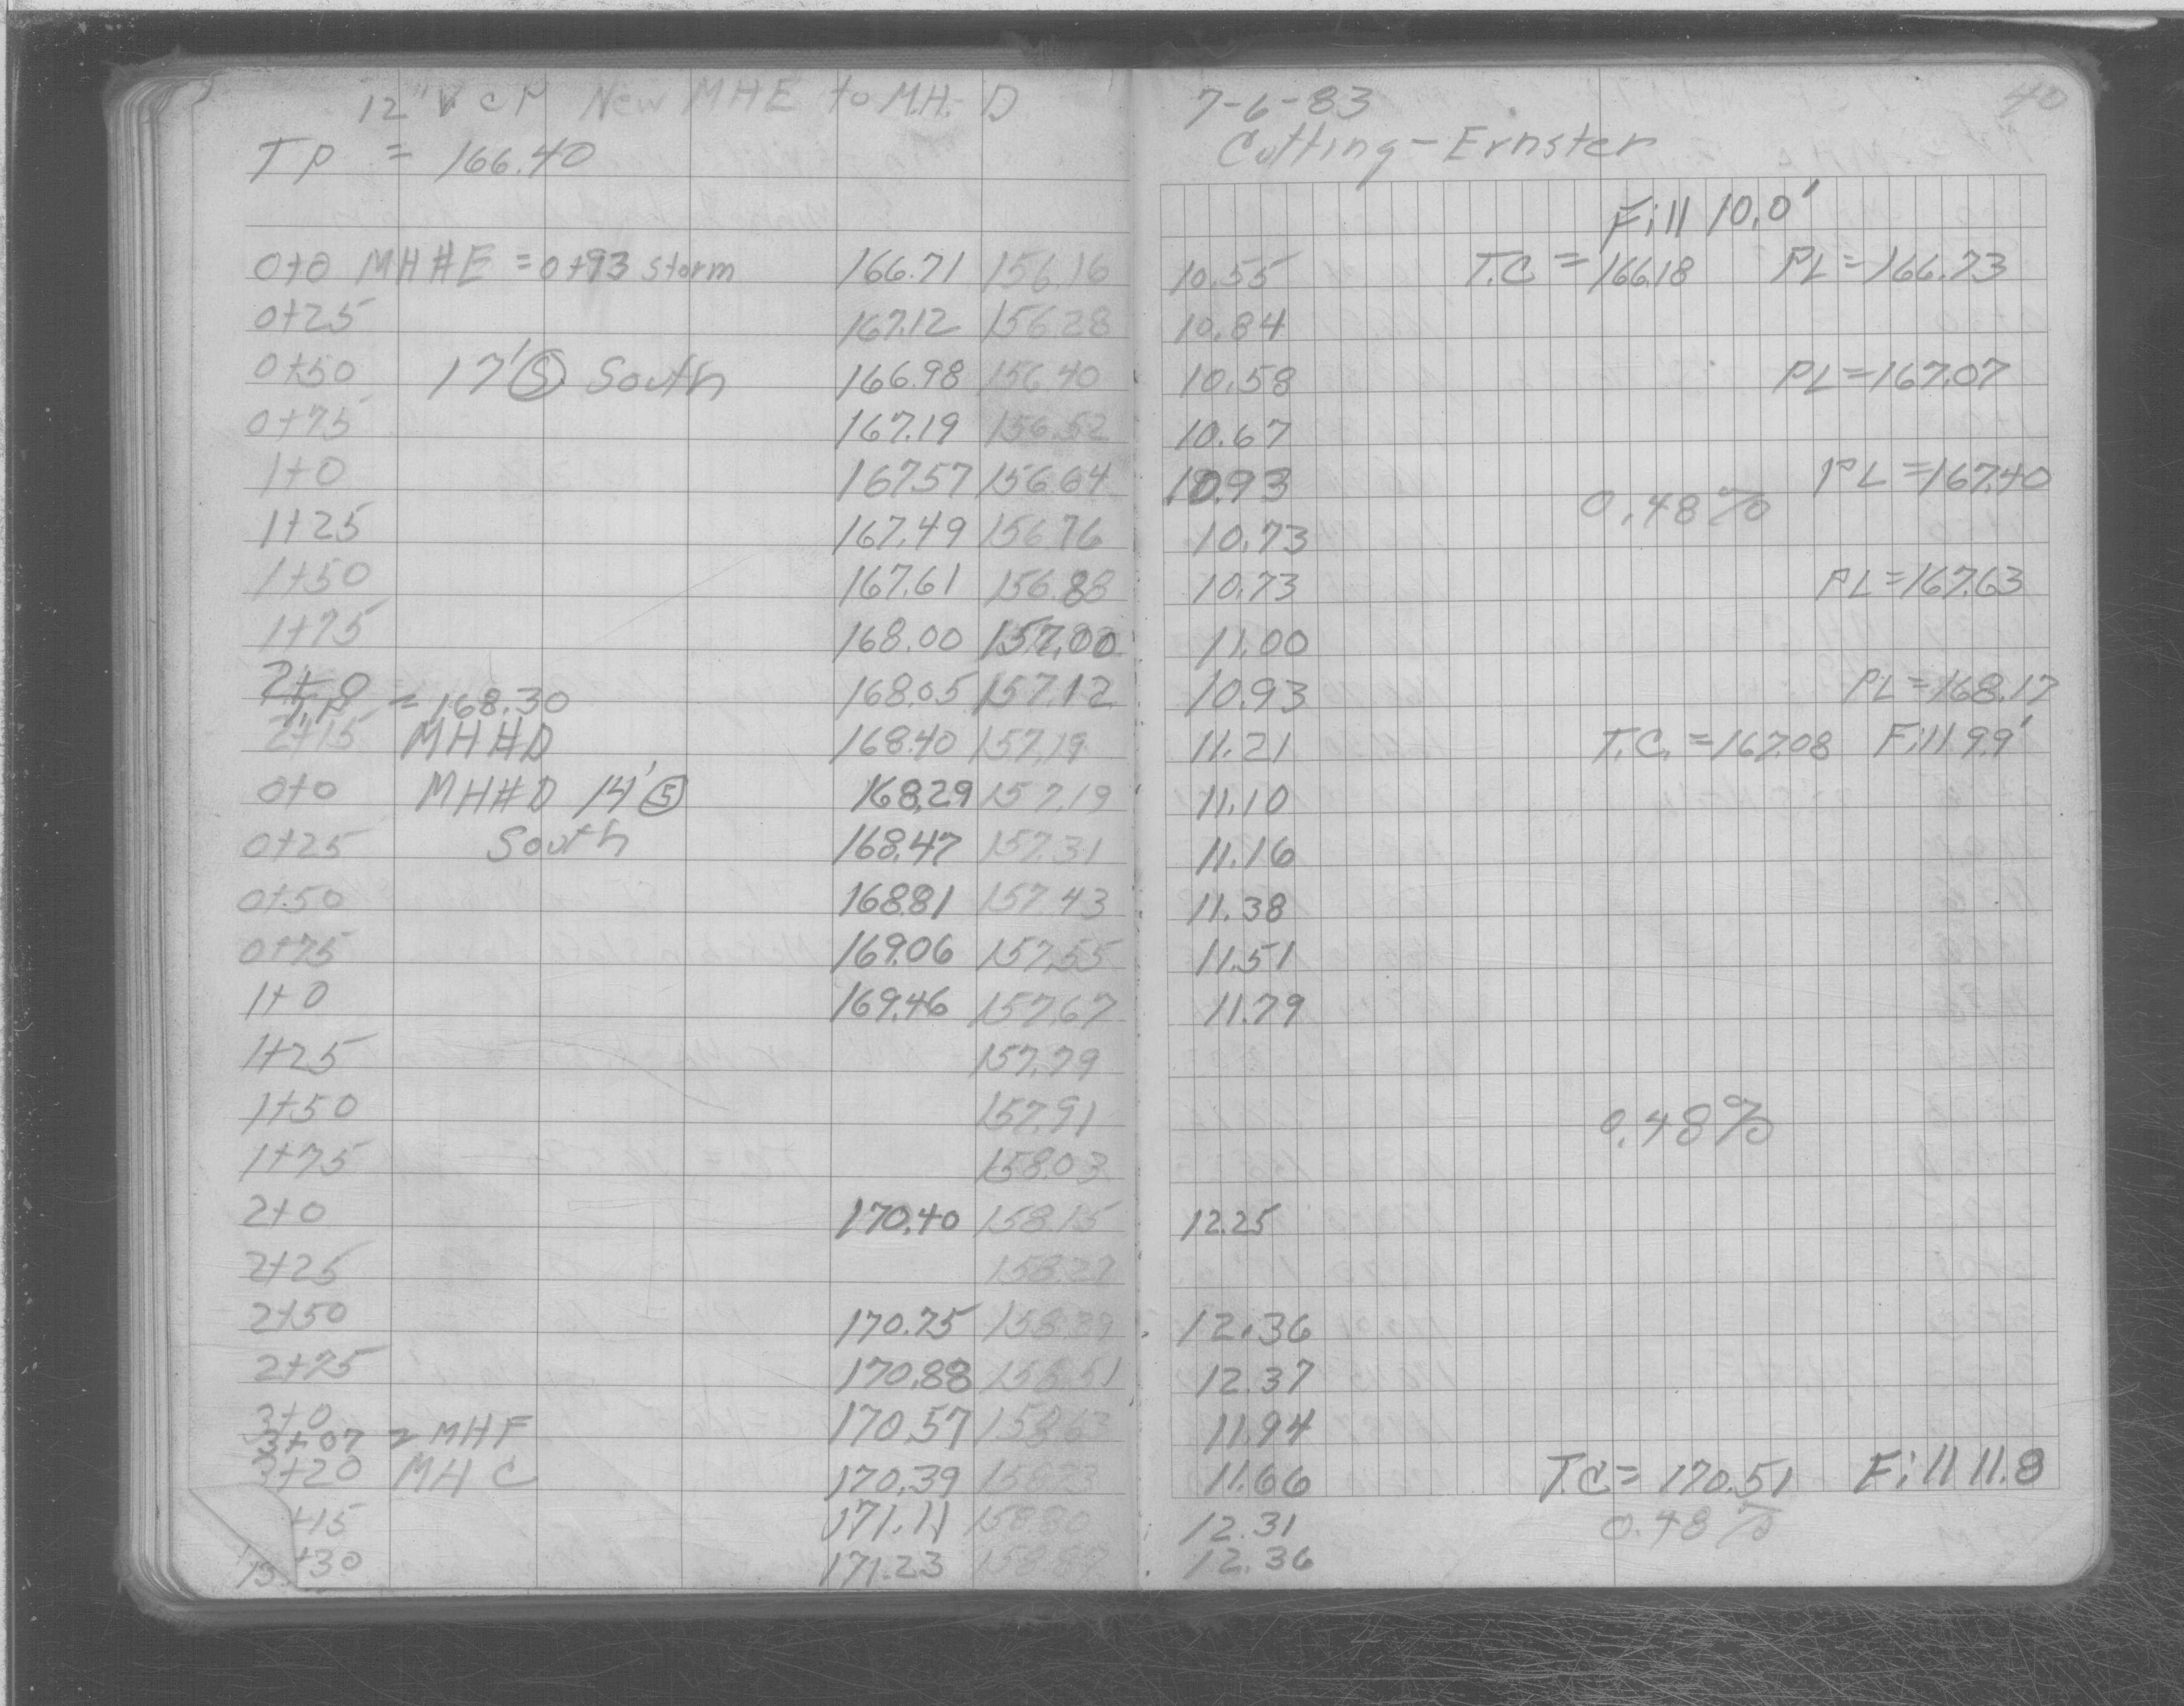 12" VCP New MHE to M.H. D 7-6-83 40
TP = 166.40 Cutting-Ernster
Fill 10.0'
0+0 MH#E = 0+93 storm 166.71 156.16 10.55 T.C = 166.18 PL = 166.73
0+25 167.12 156.28 10.84
0+50 17' Ⓢ South 166.98 156.40 10.58 PL = 167.07
0+75 167.19 156.52 10.67
1+0 167.57 156.64 10.93 0.48% PL = 167.40
1+25 167.49 156.76 10.73
1+50 167.61 156.88 10.73 PL = 167.63
1+75 168.00 157.00 11.00
2+0 168.05 157.12 10.93 PL = 168.17
T.P. = 168.30
2+15 MH#D 168.40 157.19 11.21 T.C. = 167.08 Fill 9.9'
0+0 MH#D 14' Ⓢ 168.29 157.19 11.10
0+25 South 168.47 157.31 11.16
0+50 168.81 157.43 11.38
0+75 169.06 157.55 11.51
1+0 169.46 157.67 11.79
1+25 157.79
1+50 157.91 0.48%
1+75 158.03
2+0 170.40 158.15 12.25
2+25 158.27
2+50 170.75 158.39 12.36
2+75 170.88 158.51 12.37
3+0 170.57 158.63 11.94
3+07 = MHF
3+20 MH C 170.39 158.73 11.66 T.C = 170.51 Fill 11.8
+15 171.11 158.80 12.31 0.48%
+30 171.23 158.87 12.36